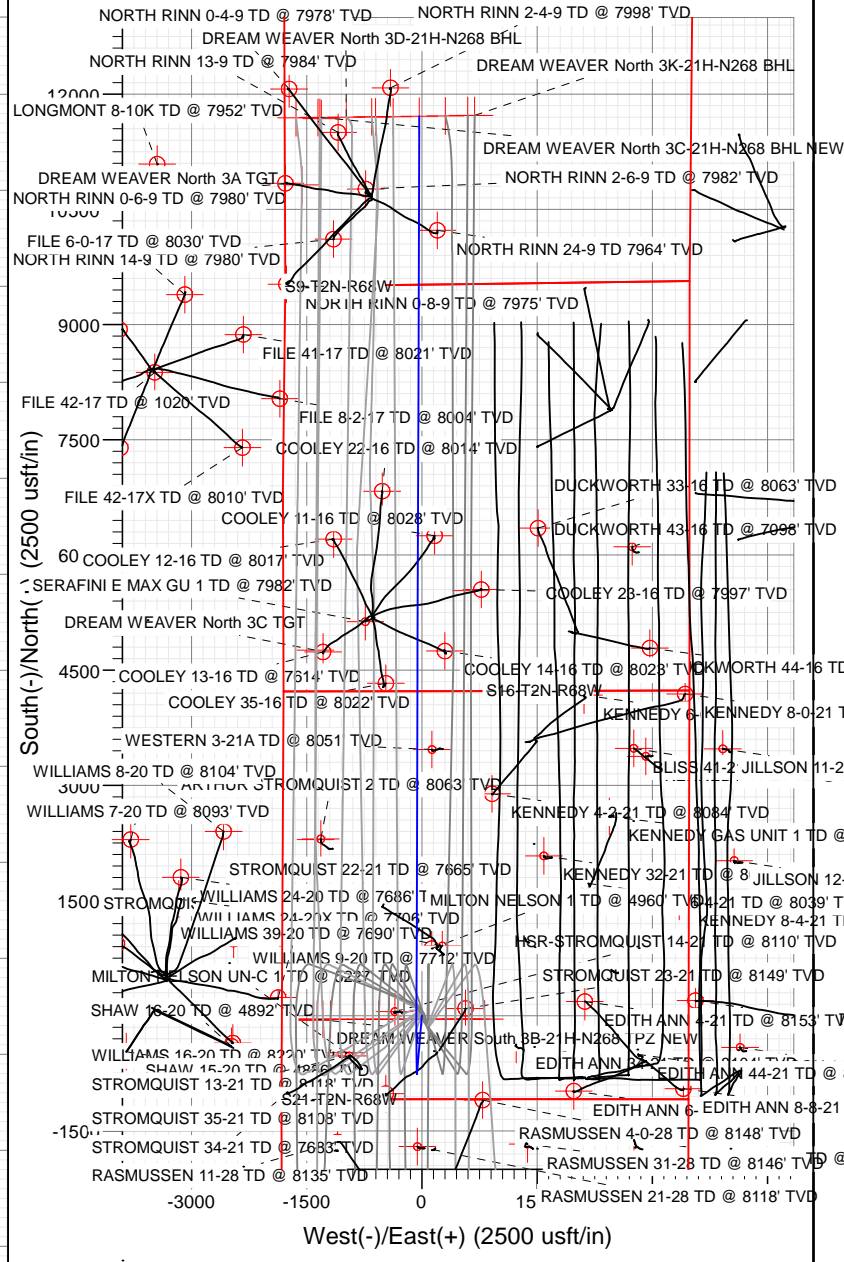 NORTH RINN 0-4-9 TD @ 7978' TVD
NORTH RINN 2-4-9 TD @ 7998' TVD
DREAM WEAVER North 3D-21H-N268 BHL
NORTH RINN 13-9 TD @ 7984' TVD
DREAM WEAVER North 3K-21H-N268 BHL
12000
LONGMONT 8-10K TD @ 7952' TVD
DREAM WEAVER North 3C-21H-N268 BHL NEW
DREAM WEAVER North 3A TGT
NORTH RINN 2-6-9 TD @ 7982' TVD
NORTH RINN 0-6-9 TD @ 7980' TVD
10500
FILE 6-0-17 TD @ 8030' TVD
NORTH RINN 24-9 TD 7964' TVD
NORTH RINN 14-9 TD @ 7980' TVD
S9-T2N-R68W
NORTH RINN 0-8-9 TD @ 7975' TVD
9000
FILE 41-17 TD @ 8021' TVD
FILE 42-17 TD @ 1020' TVD
FILE 8-2-17 TD @ 8004' TVD
7500
COOLEY 22-16 TD @ 8014' TVD
DUCKWORTH 33-16 TD @ 8063' TVD
FILE 42-17X TD @ 8010' TVD
COOLEY 11-16 TD @ 8028' TVD
DUCKWORTH 43-16 TD @ 7098' TVD
60
COOLEY 12-16 TD @ 8017' TVD
SERAFINI E MAX GU 1 TD @ 7982' TVD
COOLEY 23-16 TD @ 7997' TVD
DREAM WEAVER North 3C TGT
4500
COOLEY 14-16 TD @ 8023' TVD
CKWORTH 44-16 TD
COOLEY 13-16 TD @ 7614' TVD
S16-T2N-R68W
COOLEY 35-16 TD @ 8022' TVD
KENNEDY 6-
KENNEDY 8-0-21 T
WESTERN 3-21A TD @ 8051' TVD
WILLIAMS 8-20 TD @ 8104' TVD
BLISS 41-2
JILLSON 11-2
3000
ARTHUR STROMQUIST 2 TD @ 8063' TVD
WILLIAMS 7-20 TD @ 8093' TVD
KENNEDY 4-2-21 TD @ 8084' TVD
KENNEDY GAS UNIT 1 TD @
STROMQUIST 22-21 TD @ 7665' TVD
KENNEDY 32-21 TD @ 8
JILLSON 12-
1500
STROMQUIS
WILLIAMS 24-20 TD @ 7686' T
MILTON NELSON 1 TD @ 4960' TVD
4-21 TD @ 8039' TV
WILLIAMS 24-20X TD @ 7706' TVD
KENNEDY 8-4-21 T
WILLIAMS 39-20 TD @ 7690' TVD
HSR-STROMQUIST 14-21 TD @ 8110' TVD
WILLIAMS 9-20 TD @ 7712' TVD
MILTON NELSON UN-C 1 TD @ 8227' TVD
STROMQUIST 23-21 TD @ 8149' TVD
SHAW 16-20 TD @ 4892' TVD
EDITH ANN 4-21 TD @ 8153' TV
DREAM WEAVER South 3B-21H-N268 TPZ NEW
WILLIAMS 16-20 TD @ 8220' TVD
EDITH ANN
SHAW 15-20 TD @
EDITH ANN 44-21 TD @
STROMQUIST 13-21 TD @ 8118' TVD
S21-T2N-R68W
EDITH ANN 6-
EDITH ANN 8-8-21
STROMQUIST 35-21 TD @ 8108' TVD
-1500
RASMUSSEN 4-0-28 TD @ 8148' TVD
STROMQUIST 34-21 TD @ 7683' TVD
TD @
RASMUSSEN 31-28 TD @ 8146' TVD
RASMUSSEN 11-28 TD @ 8135' TVD
RASMUSSEN 21-28 TD @ 8118' TVD
-3000
-1500
0
15
West(-)/East(+) (2500 usft/in)
South(-)/North( ) (2500 usft/in)